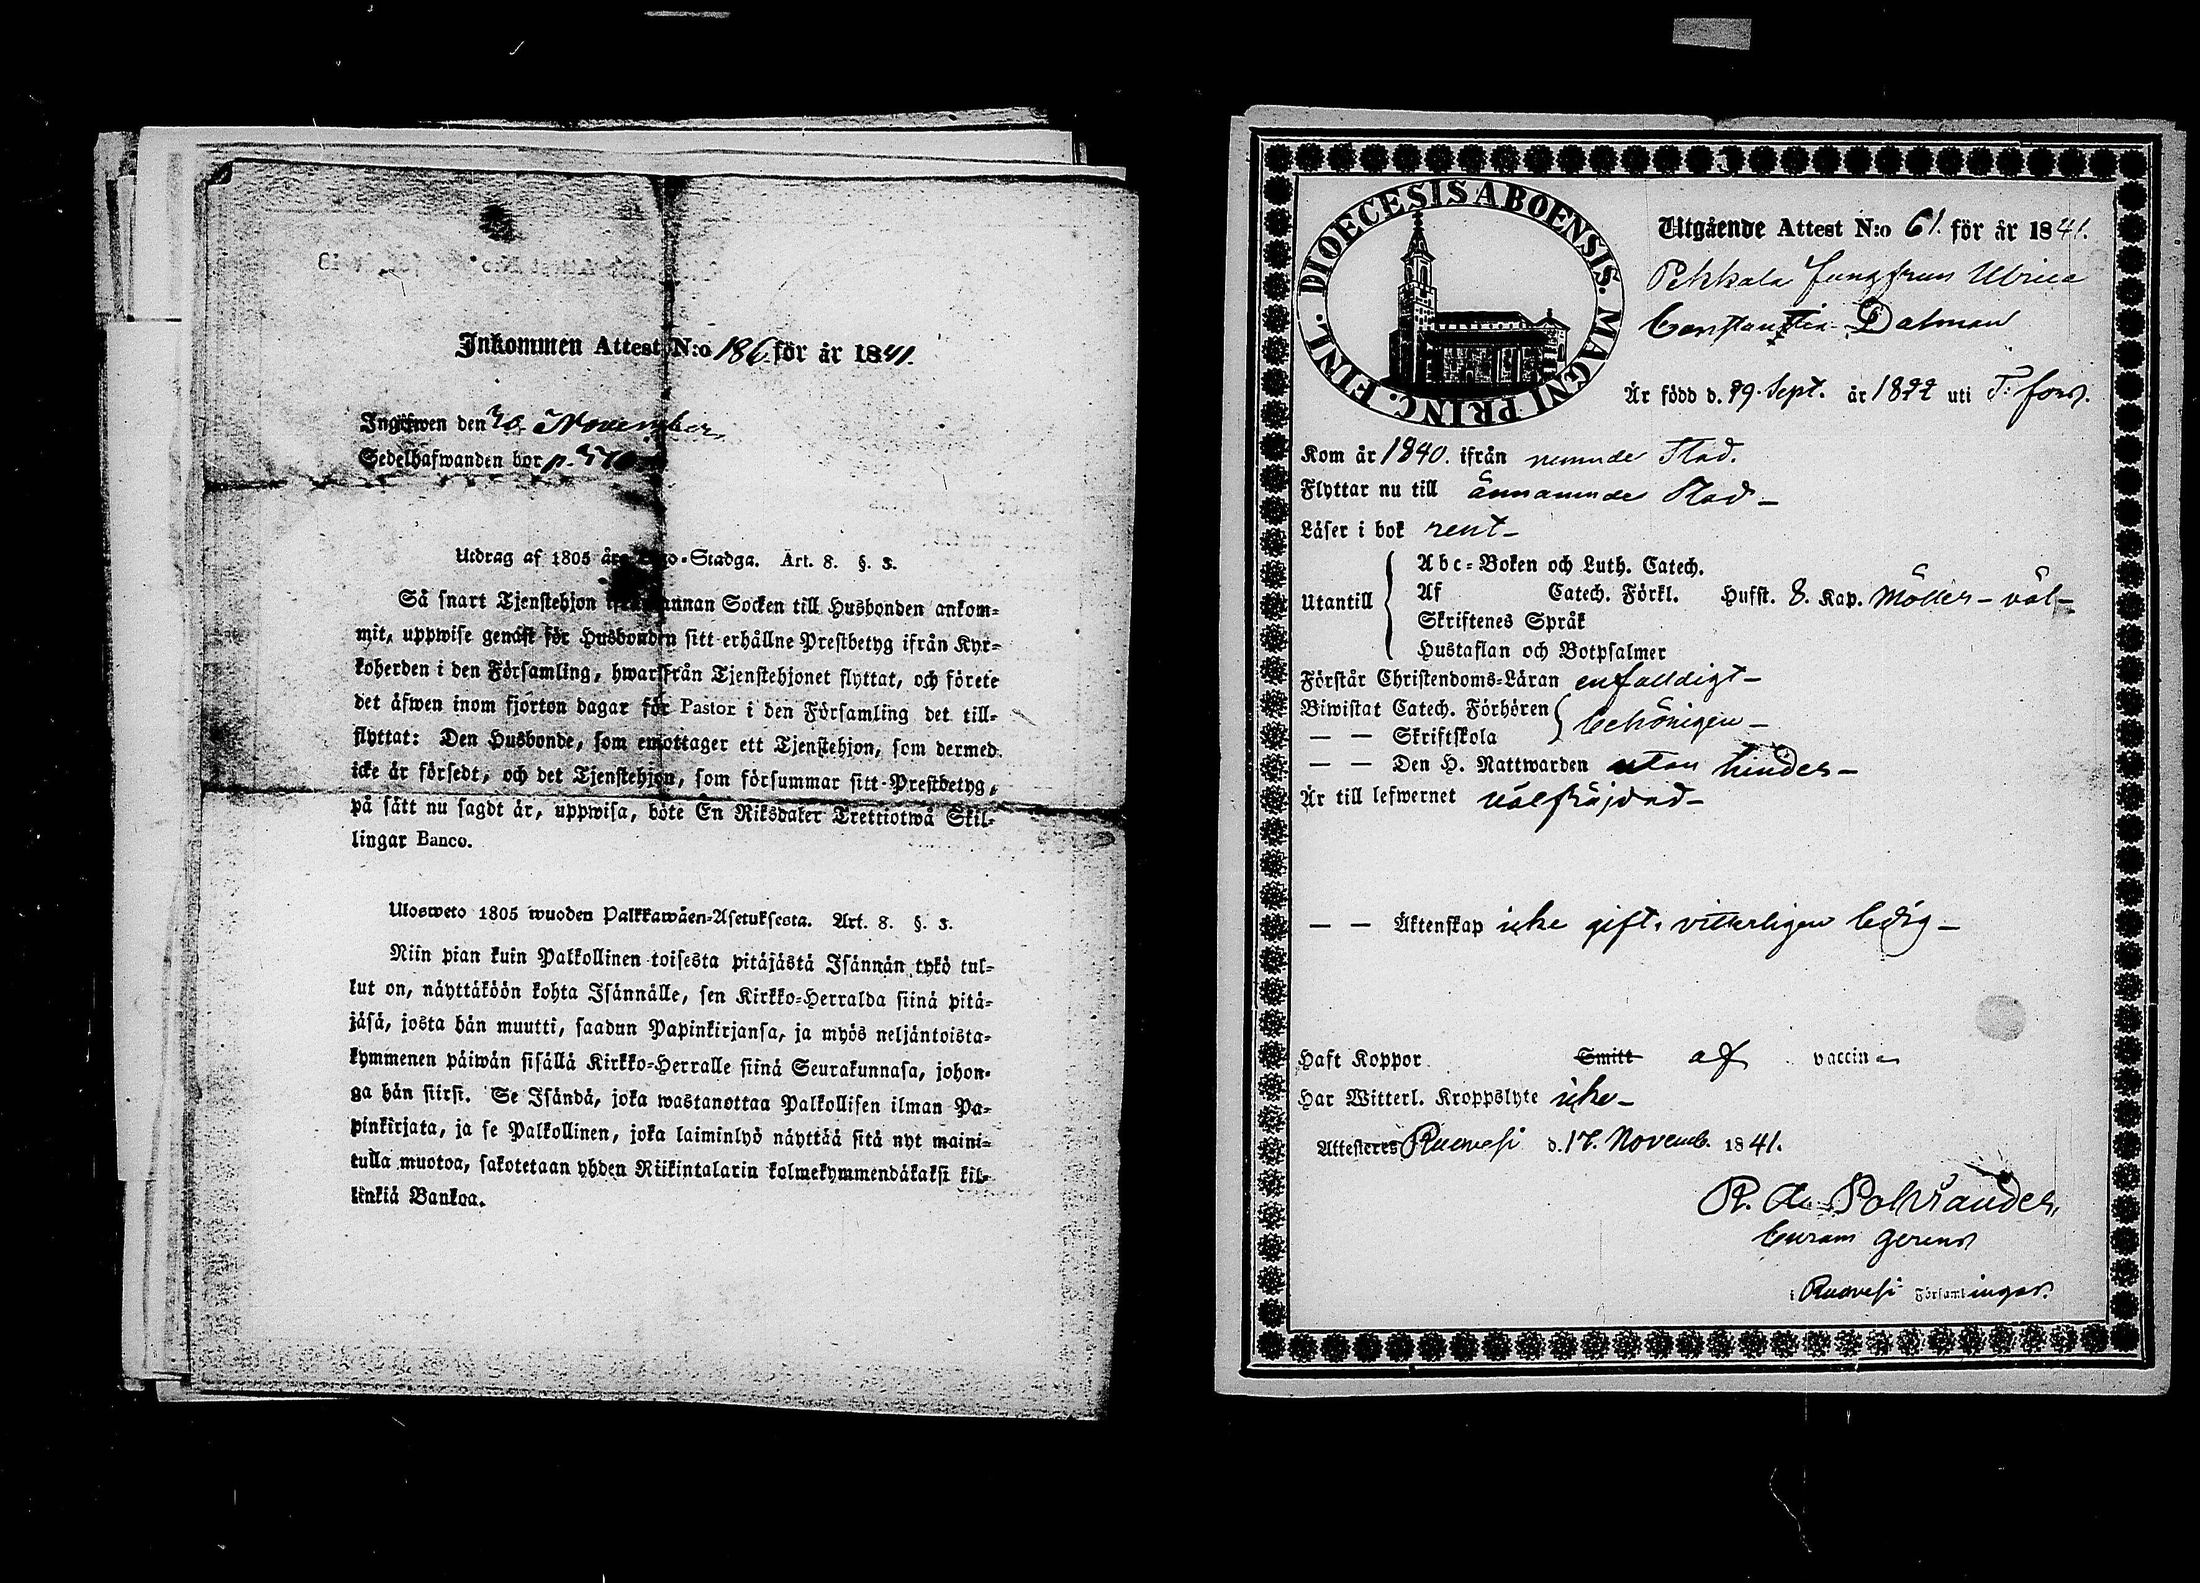 Inkommen Attest N:o 186 för år 1841.
Ingifwen den 30 November
Sedelhafwanden bor p.
Utdrag af 1805 års Stadga. Art. 8. §. 3.
Så snart Tjenstehjon annan Socken till Husbonden ankom-
mit, uppwise genast för Husbonden sitt erhållne Prestbetyg ifrån Kyr-
koherden i den Församling, hwarifrån Tjenstehjonet flyttat, och förete
det äfwen inom fjorton dagar för Pastor i den Församling det till-
flyttat: Den Husbonde, som emottager ett Tjenstehjon, som dermed
icke är försedt, och det Tjenstehjon, som försummar sitt Prestbetyg,
på sätt nu sagdt är, uppwisa, böte En Riksdaler Trettiotwå Skil-
lingar Banco.
Ulosweto 1805 wuoden Palkkawäen-Asetuksesta. Art. 8. §. 3.
Niin pian kuin Palkollinen toisesta pitäjästä Isännän tykö tul-
lut on, näyttäköön kohta Isännälle, sen Kirkko-Herralda siinä pitä-
jäsä, josta hän muutti, saadun Papinkirjansa, ja myös neljäntoista-
kymmenen päiwän sisällä Kirkko-Herralle siinä Seurakunnasa, johon-
ga hän siirsi. Se Isändä, joka wastanottaa Palkollisen ilman Pa-
pinkirjata, ja se Palkollinen, joka laiminlyö näyttää sitä nyt maini-
tulla muotoa, sakotetaan yhden Riikintalarin kolmekymmendäkaksi kil-
linkiä Bankoa.
DIOECESIS ABOENSIS. MAGNI PRINC. FINL.
Utgående Attest N:o 61. för år 1841.
Pekkala Jungfrun Ulrica
Constantia Dalman
Är född d. 29. Sept. år 1822 uti T:fors.
Kom år 1840. ifrån nemnde Stad.
Flyttar nu till ännämnde Stad-
Läser i bok rent-
Utantill
Abc-Boken och Luth. Catech.
Af Catech. Förkl. Hufst. 8. Kap. Möller - väl-
Skriftenes Språk
Hustaflan och Botpsalmer
Förstår Christendoms-Läran enfalldigt-
Biwistat Catech. Förhören behörigen-
— — Skriftskola
— — Den H. Nattwarden utan hinder-
Är till lefwernet välfräjdad-
— — Äktenskap icke gift, vitterligen ledig-
Haft Koppor Smitt af vaccin
Har Witterl. Kroppslyte icke-
Attesteres Ruovesi d. 17. Novemb. 1841.
R. A. Polviander,
Curam gerens
i Ruovesi Församlingar.